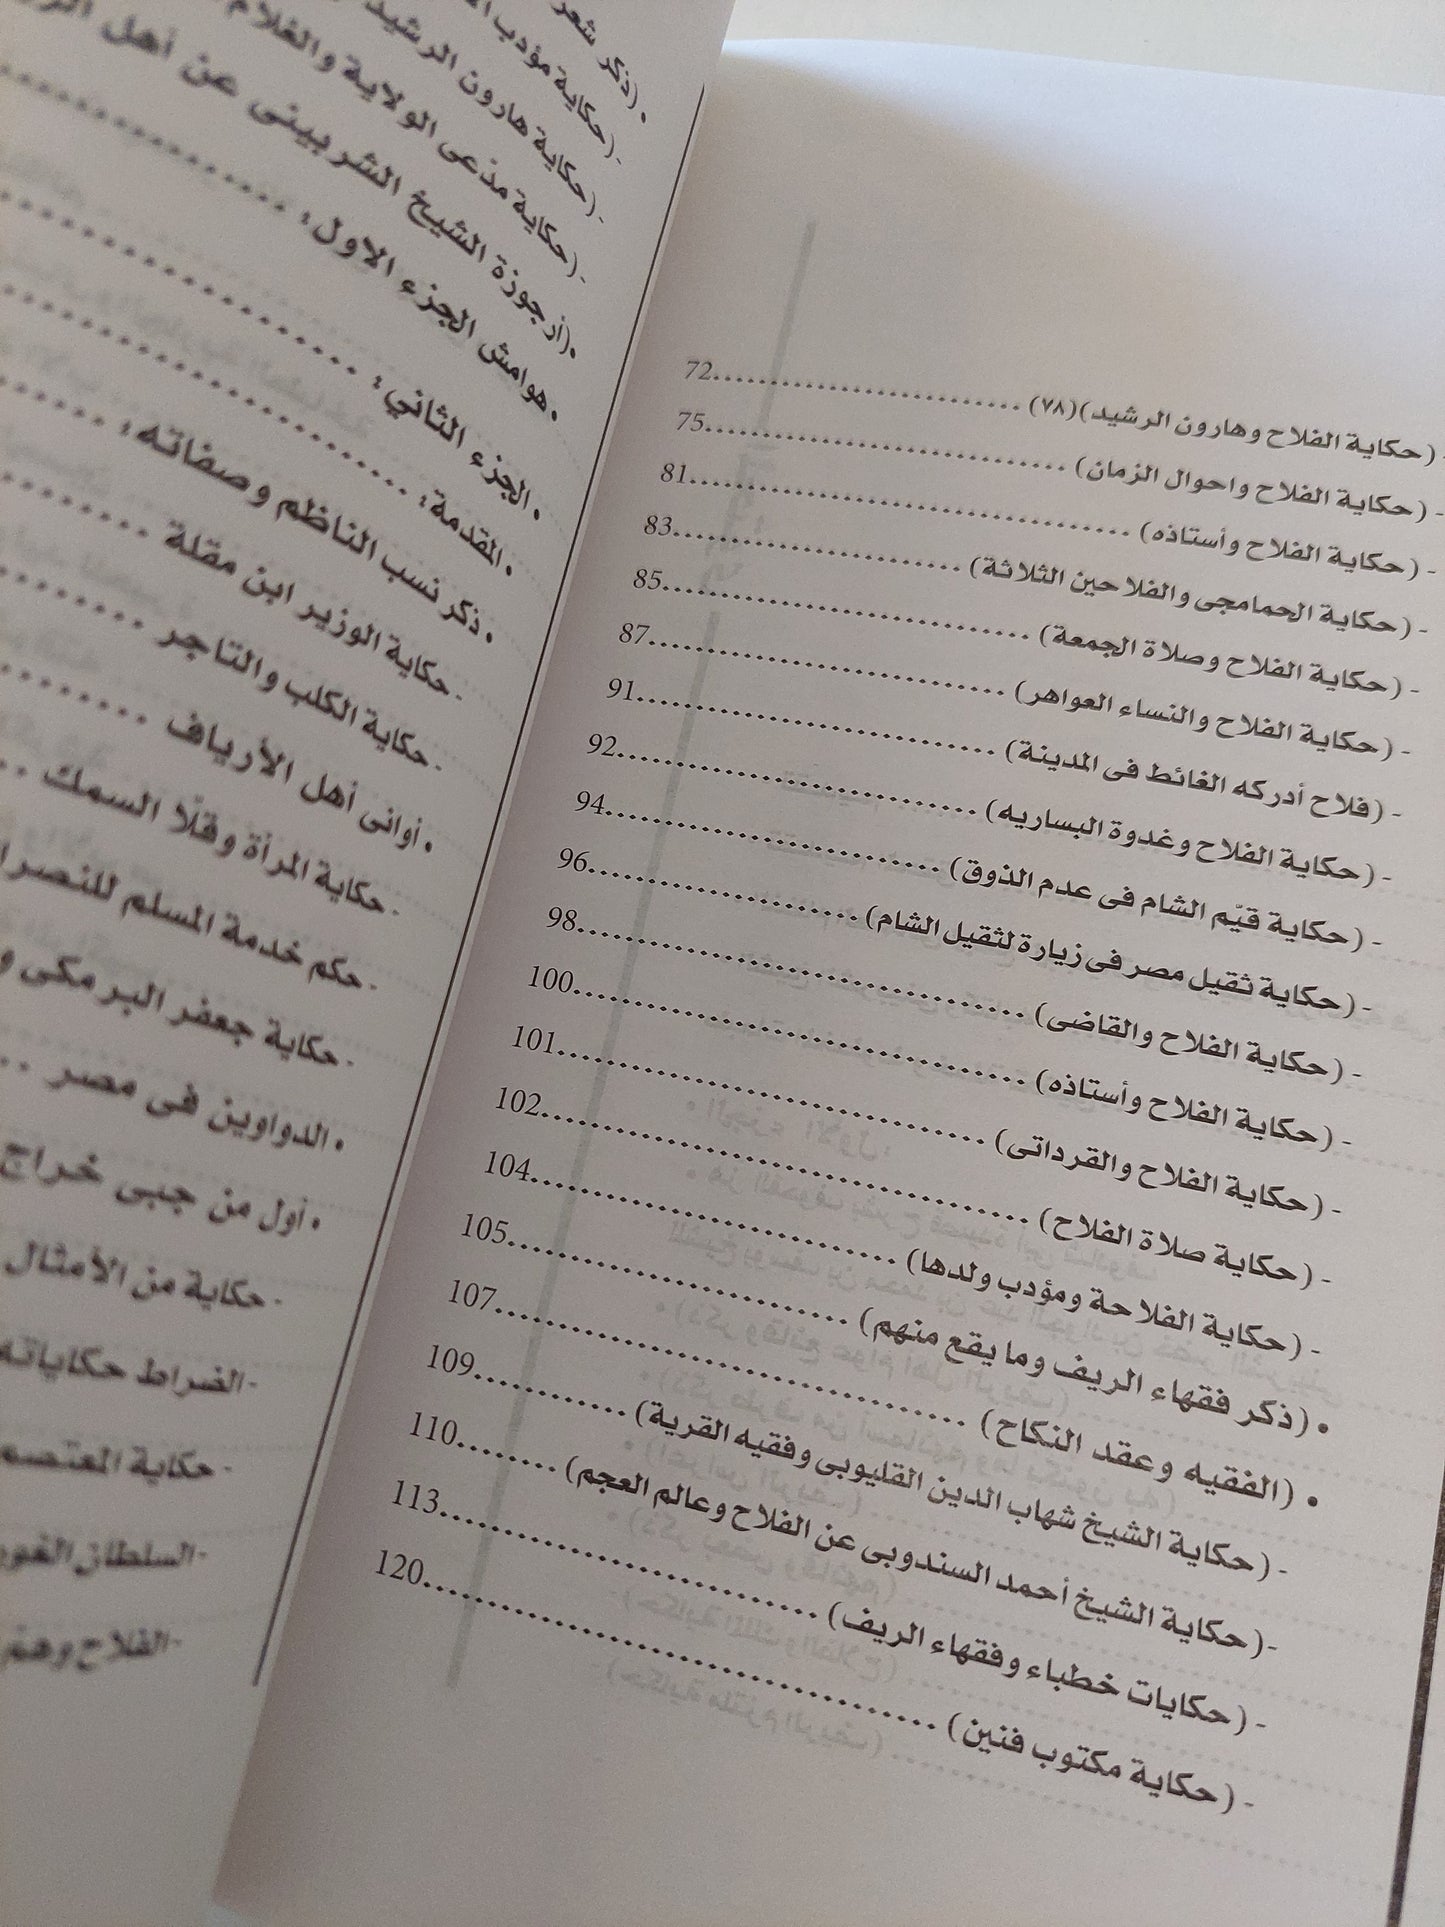 - (حكاية الفلاح وهارون الرشيد)(٧٨) ............................72
- (حكاية الفلاح واحوال الزمان) ................................75
- (حكاية الفلاح وأستاذه) ........................................81
- (حكاية الحمامجى والفلاحين الثلاثة) ..........................83
- (حكاية الفلاح وصلاة الجمعة) .................................85
- (حكاية الفلاح والنساء العواهر) ..............................87
- (فلاح أدركه الغائط فى المدينة) ..............................91
- (حكاية الفلاح وغدوة البساريه) ...............................92
- (حكاية قيّم الشام فى عدم الذوق) .............................94
- (حكاية ثقيل مصر فى زيارة لثقيل الشام) .......................96
- (حكاية الفلاح والقاضى) .......................................98
- (حكاية الفلاح وأستاذه) .......................................100
- (حكاية الفلاح والقرداتى) .....................................101
- (حكاية صلاة الفلاح) ..........................................102
- (حكاية الفلاحة ومؤدب ولدها) ................................104
• (ذكر فقهاء الريف وما يقع منهم) .............................105
• (الفقيه وعقد النكاح) .......................................107
- (حكاية الشيخ شهاب الدين القليوبى وفقيه القرية) ............109
- (حكاية الشيخ أحمد السندوبى عن الفلاح وعالم العجم) .........110
- (حكايات خطباء وفقهاء الريف) ................................113
- (حكاية مكتوب فنين) .........................................120
• (ذكر شعر
- (حكاية مؤدب
- (حكاية هارون الرشيد
- (حكاية مدّعى الولاية والغلام
• (أرجوزة الشيخ الشربينى عن أهل
• هوامش الجزء الاول: ..............
• الجزء الثاني: ..............
• المقدمة: ..............
• ذكر نسب الناظم وصفاته: .....
- حكاية الوزير ابن مقلة .......
- حكاية الكلب والتاجر .......
• أوانى أهل الأرياف .......
- حكاية المرأة وقلّا السمك ..
- حكم خدمة المسلم
- حكاية جعفر البرمكى و
• الدواوين فى مصر ..
• أول من جبى خراج
- حكاية من الأمثال
- الضراط حكاياته
- حكاية المعتصم
- السلطان
- الفلاح وهم